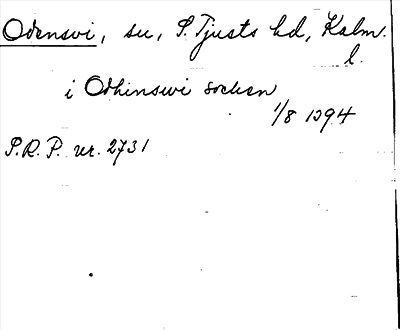 Odensvi, sn, S. Tjusts hd, Kalm.
l.
i Odhinswi sochen
1/8 1394
S.R.P. nr. 2731